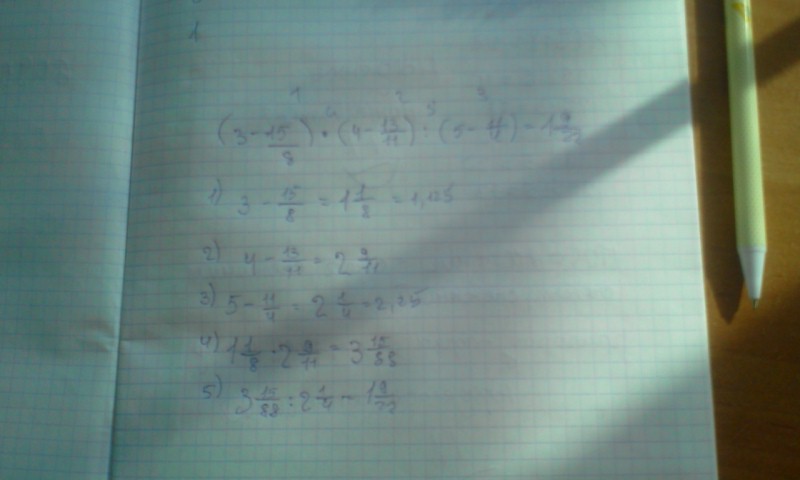 1
1 4 2 5 3
(3 - 15/8) · (4 - 13/11) : (5 - 11/4) = 1 9/22
1) 3 - 15/8 = 1 1/8 = 1,125
2) 4 - 13/11 = 2 9/11
3) 5 - 11/4 = 2 1/4 = 2,25
4) 1 1/8 · 2 9/11 = 3 15/88
5) 3 15/88 : 2 1/4 = 1 9/22